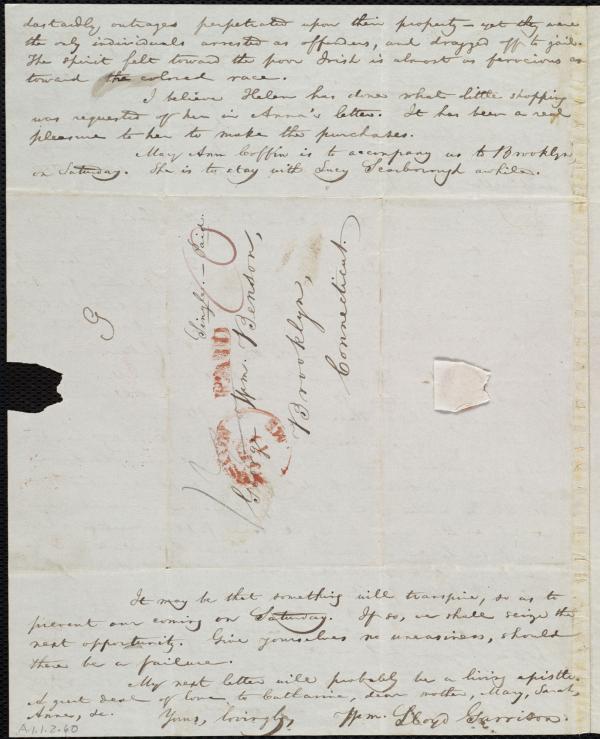 dastardly outrages perpetrated upon their property — yet they were
the only individuals arrested as offenders, and dragged off to jail.
The spirit felt toward the poor Irish is almost as ferocious as
toward the colored race.
I believe Helen has done what little shopping
was requested of her in Anna's letter. It has been a real
pleasure to her to make the purchases.
Mary Ann Coffin is to accompany us to Brooklyn,
on Saturday. She is to stay with Lucy Scarborough awhile.
Single. — Paid.
PAID
George Wm. Benson,
Brooklyn,
Connecticut.
It may be that something will transpire, so as to
prevent our coming on Saturday. If so, we shall seize the
next opportunity. Give yourselves no uneasiness, should
there be a failure.
My next letter will probably be a living epistle.
A great deal of love to Catharine, dear mother, Mary, Sarah,
Anna, &c. Yours, lovingly, Wm. Lloyd Garrison.
A.1.1.2.60